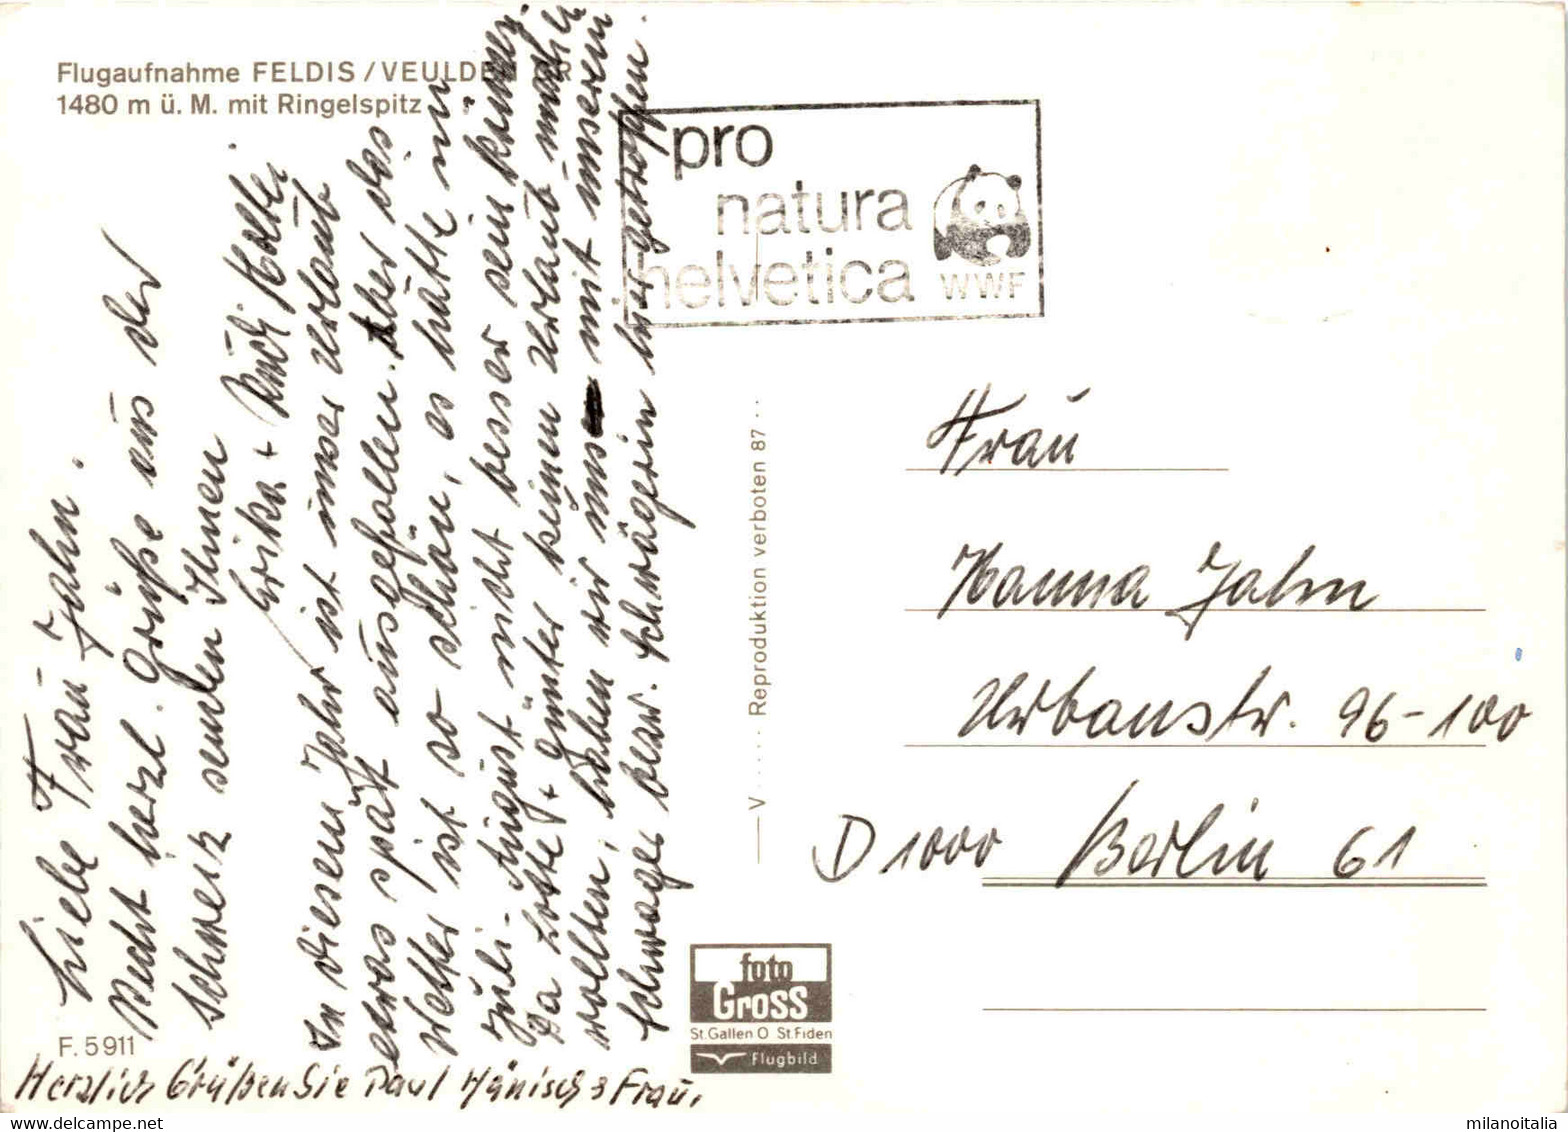 Flugaufnahme FELDIS / VEULDEN GR
1480 m ü. M. mit Ringelspitz
pro
natura
helvetica
WWF
Liebe Frau Jahn.
Recht herzl. Grüße aus der
Schweiz senden Ihnen
Erika + Rudi
In diesem Jahr ist unser Urlaub
etwas spät ausgefallen. Aber das
Wetter ist so schön, es hätte im
Juli-August nicht besser sein können.
Da Lotte + Günter keinen Urlaub machen
wollten, haben wir uns mit unserem
Schwager bezw. Schwägerin hier getroffen.
Herzlich Grüßen Sie Paul Hänisch & Frau.
F. 5911
V ..... Reproduktion verboten 87 ..
foto
Gross
St.Gallen O St.Fiden
Flugbild
Frau
Hanna Jahn
Urbanstr. 96-100
D 1000 Berlin 61
milanoitalia